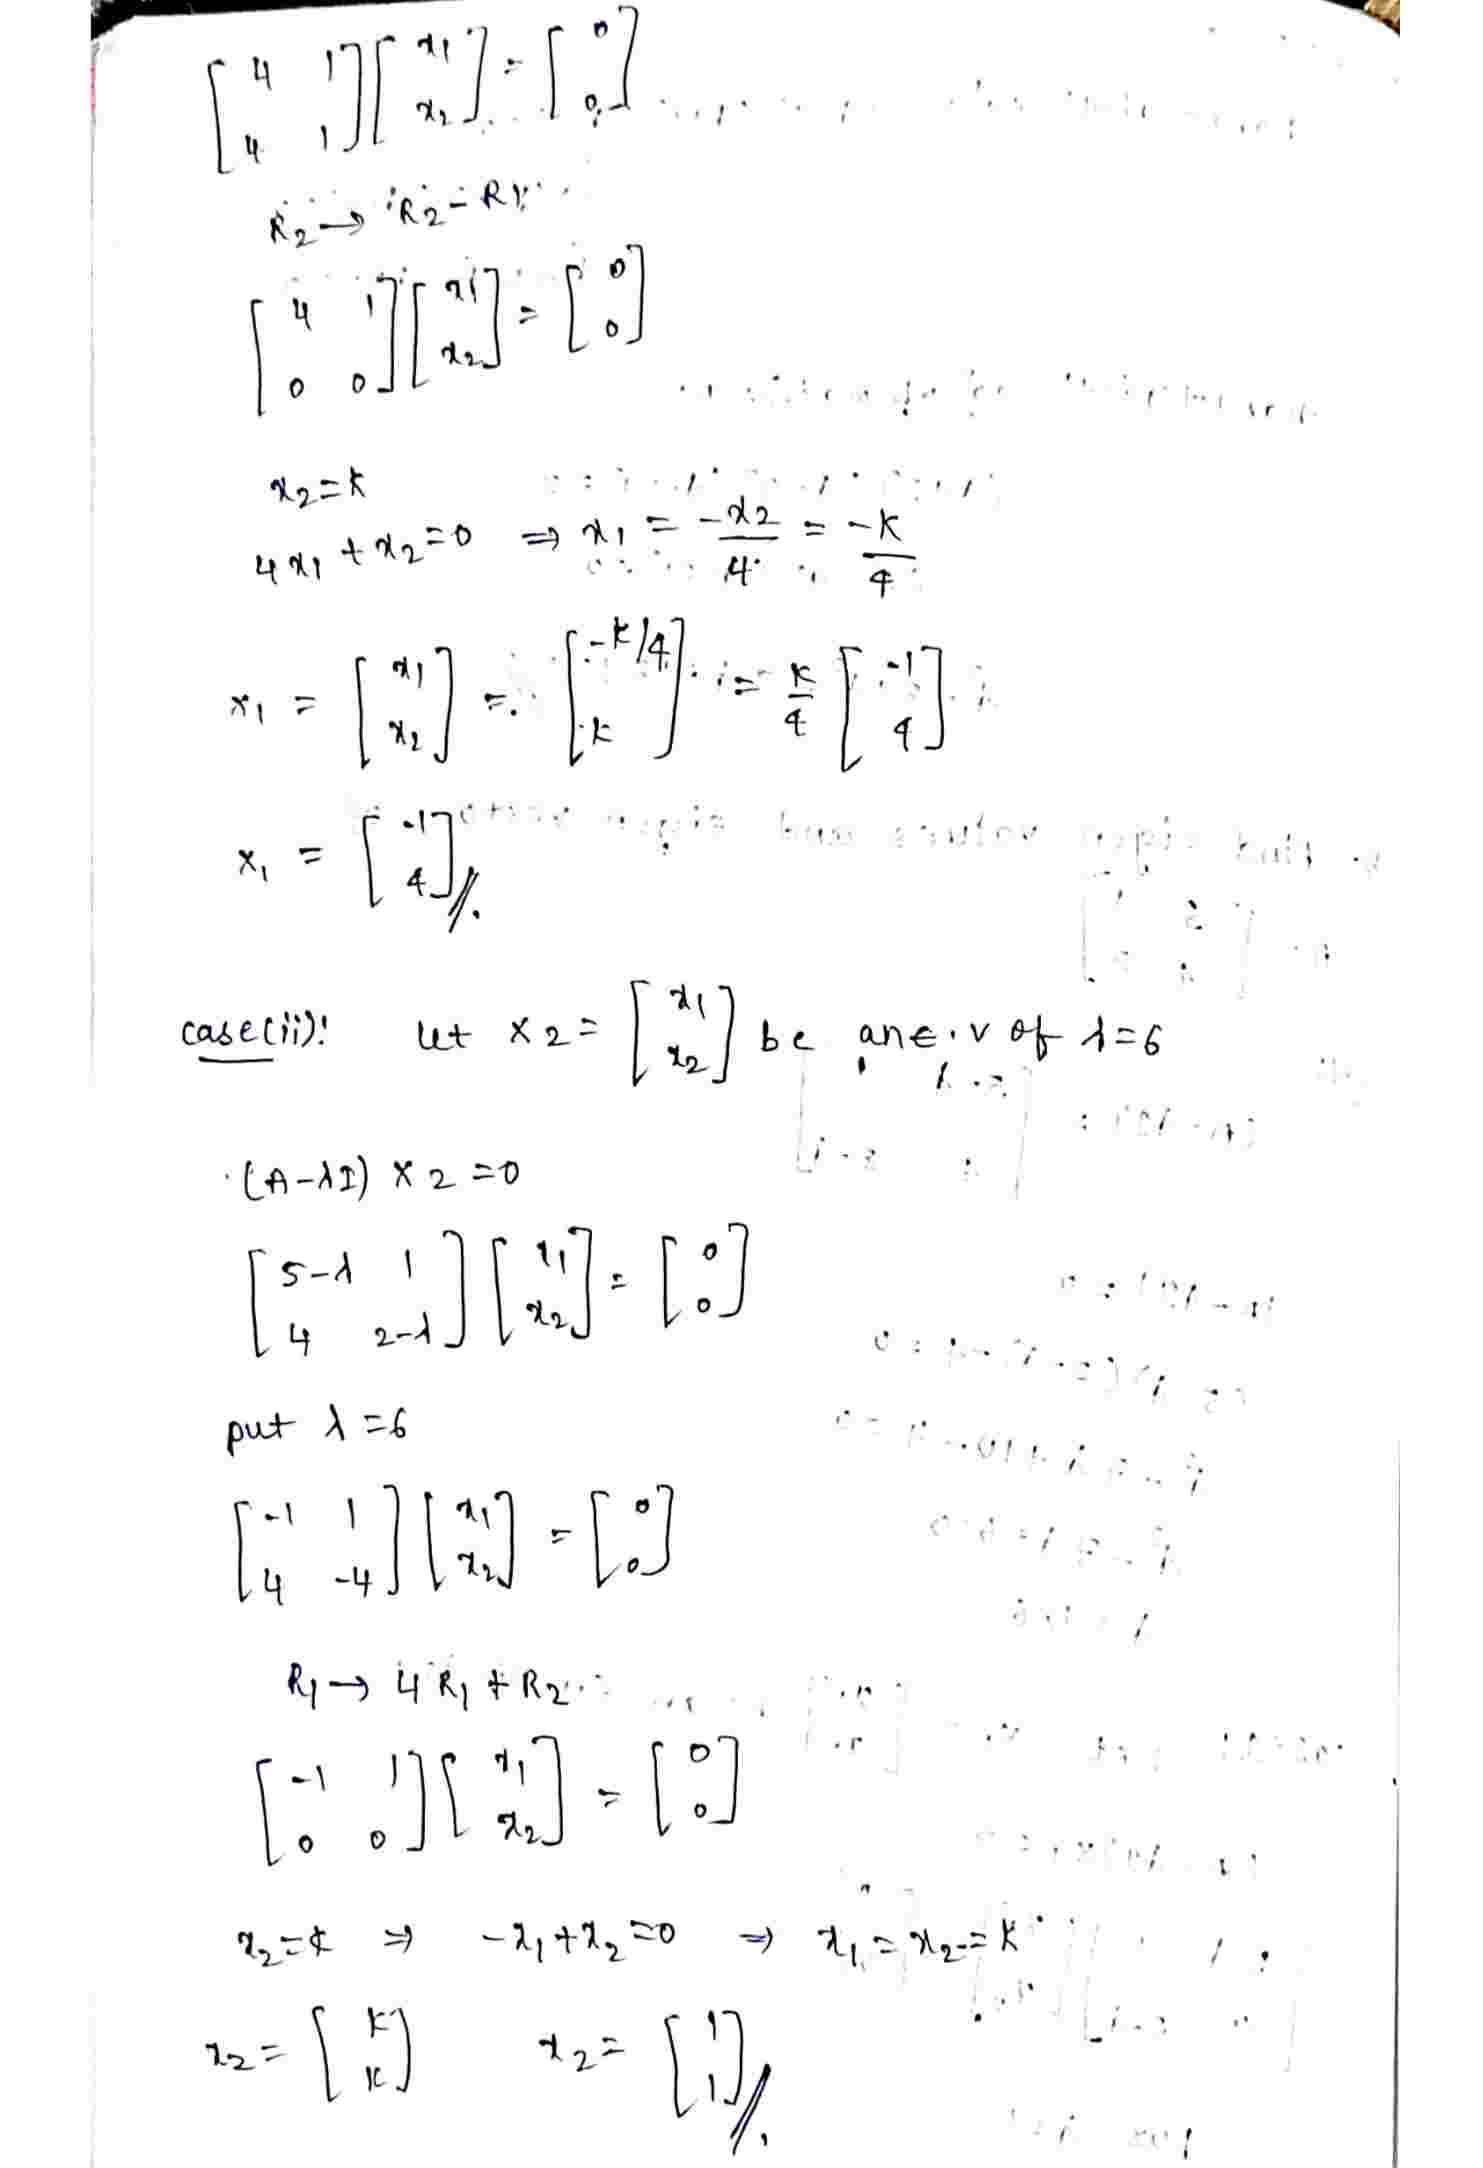 [4 1; 4 1] [x1; x2] = [0; 0]
R2 → R2 - R1
[4 1; 0 0] [x1; x2] = [0; 0]
x2 = k
4x1 + x2 = 0 ⇒ x1 = -x2/4 = -k/4
x1 = [x1; x2] = [-k/4; k] = k/4 [-1; 4]
x1 = [-1; 4]//.
case(ii): let x2 = [x1; x2] be an e.v of λ=6
(A-λI) x2 = 0
[5-λ 1; 4 2-λ] [x1; x2] = [0; 0]
put λ = 6
[-1 1; 4 -4] [x1; x2] = [0; 0]
R1 → 4R1 + R2
[-1 1; 0 0] [x1; x2] = [0; 0]
x2 = k ⇒ -x1 + x2 = 0 ⇒ x1 = x2 = k
x2 = [k; k] x2 = [1; 1]//.